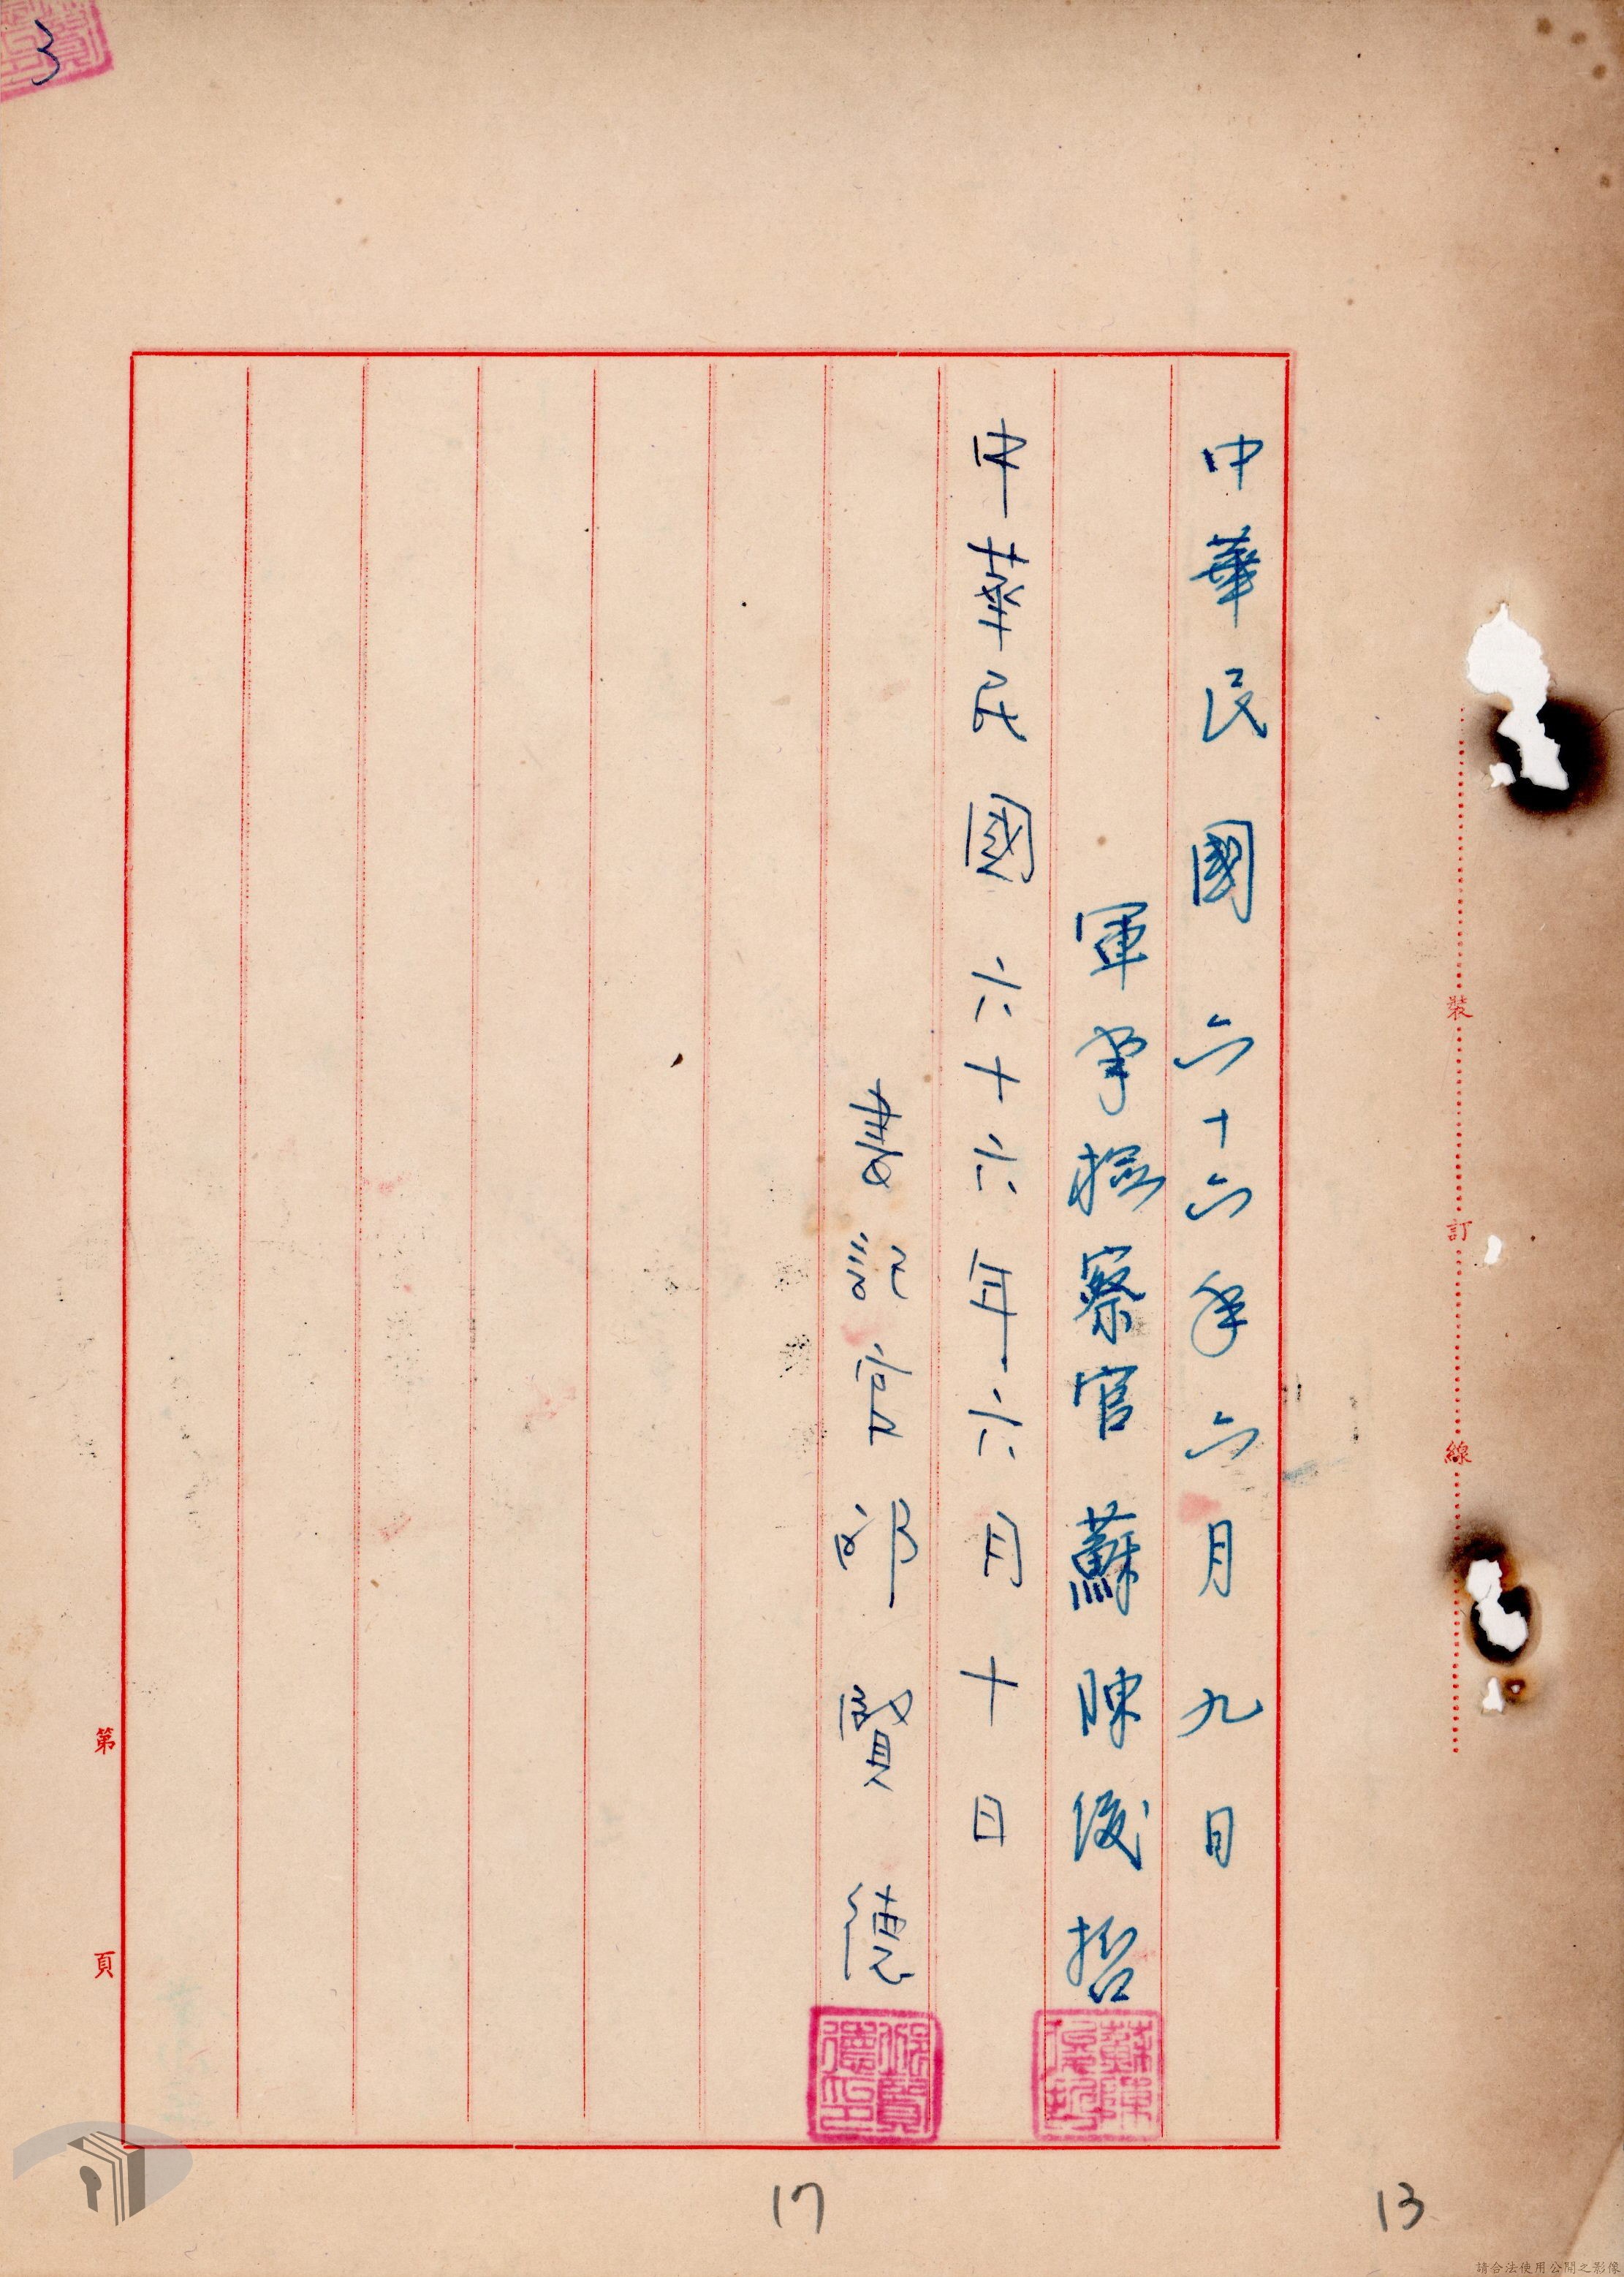 中華民國六十六年六月九日
軍事檢察官蘇陳俊哲
中華民國六十六年六月十日
書記官邱賢德
蘇陳俊哲
賢德印
裝訂線
第頁
3
17
13
請合法使用公開之影像